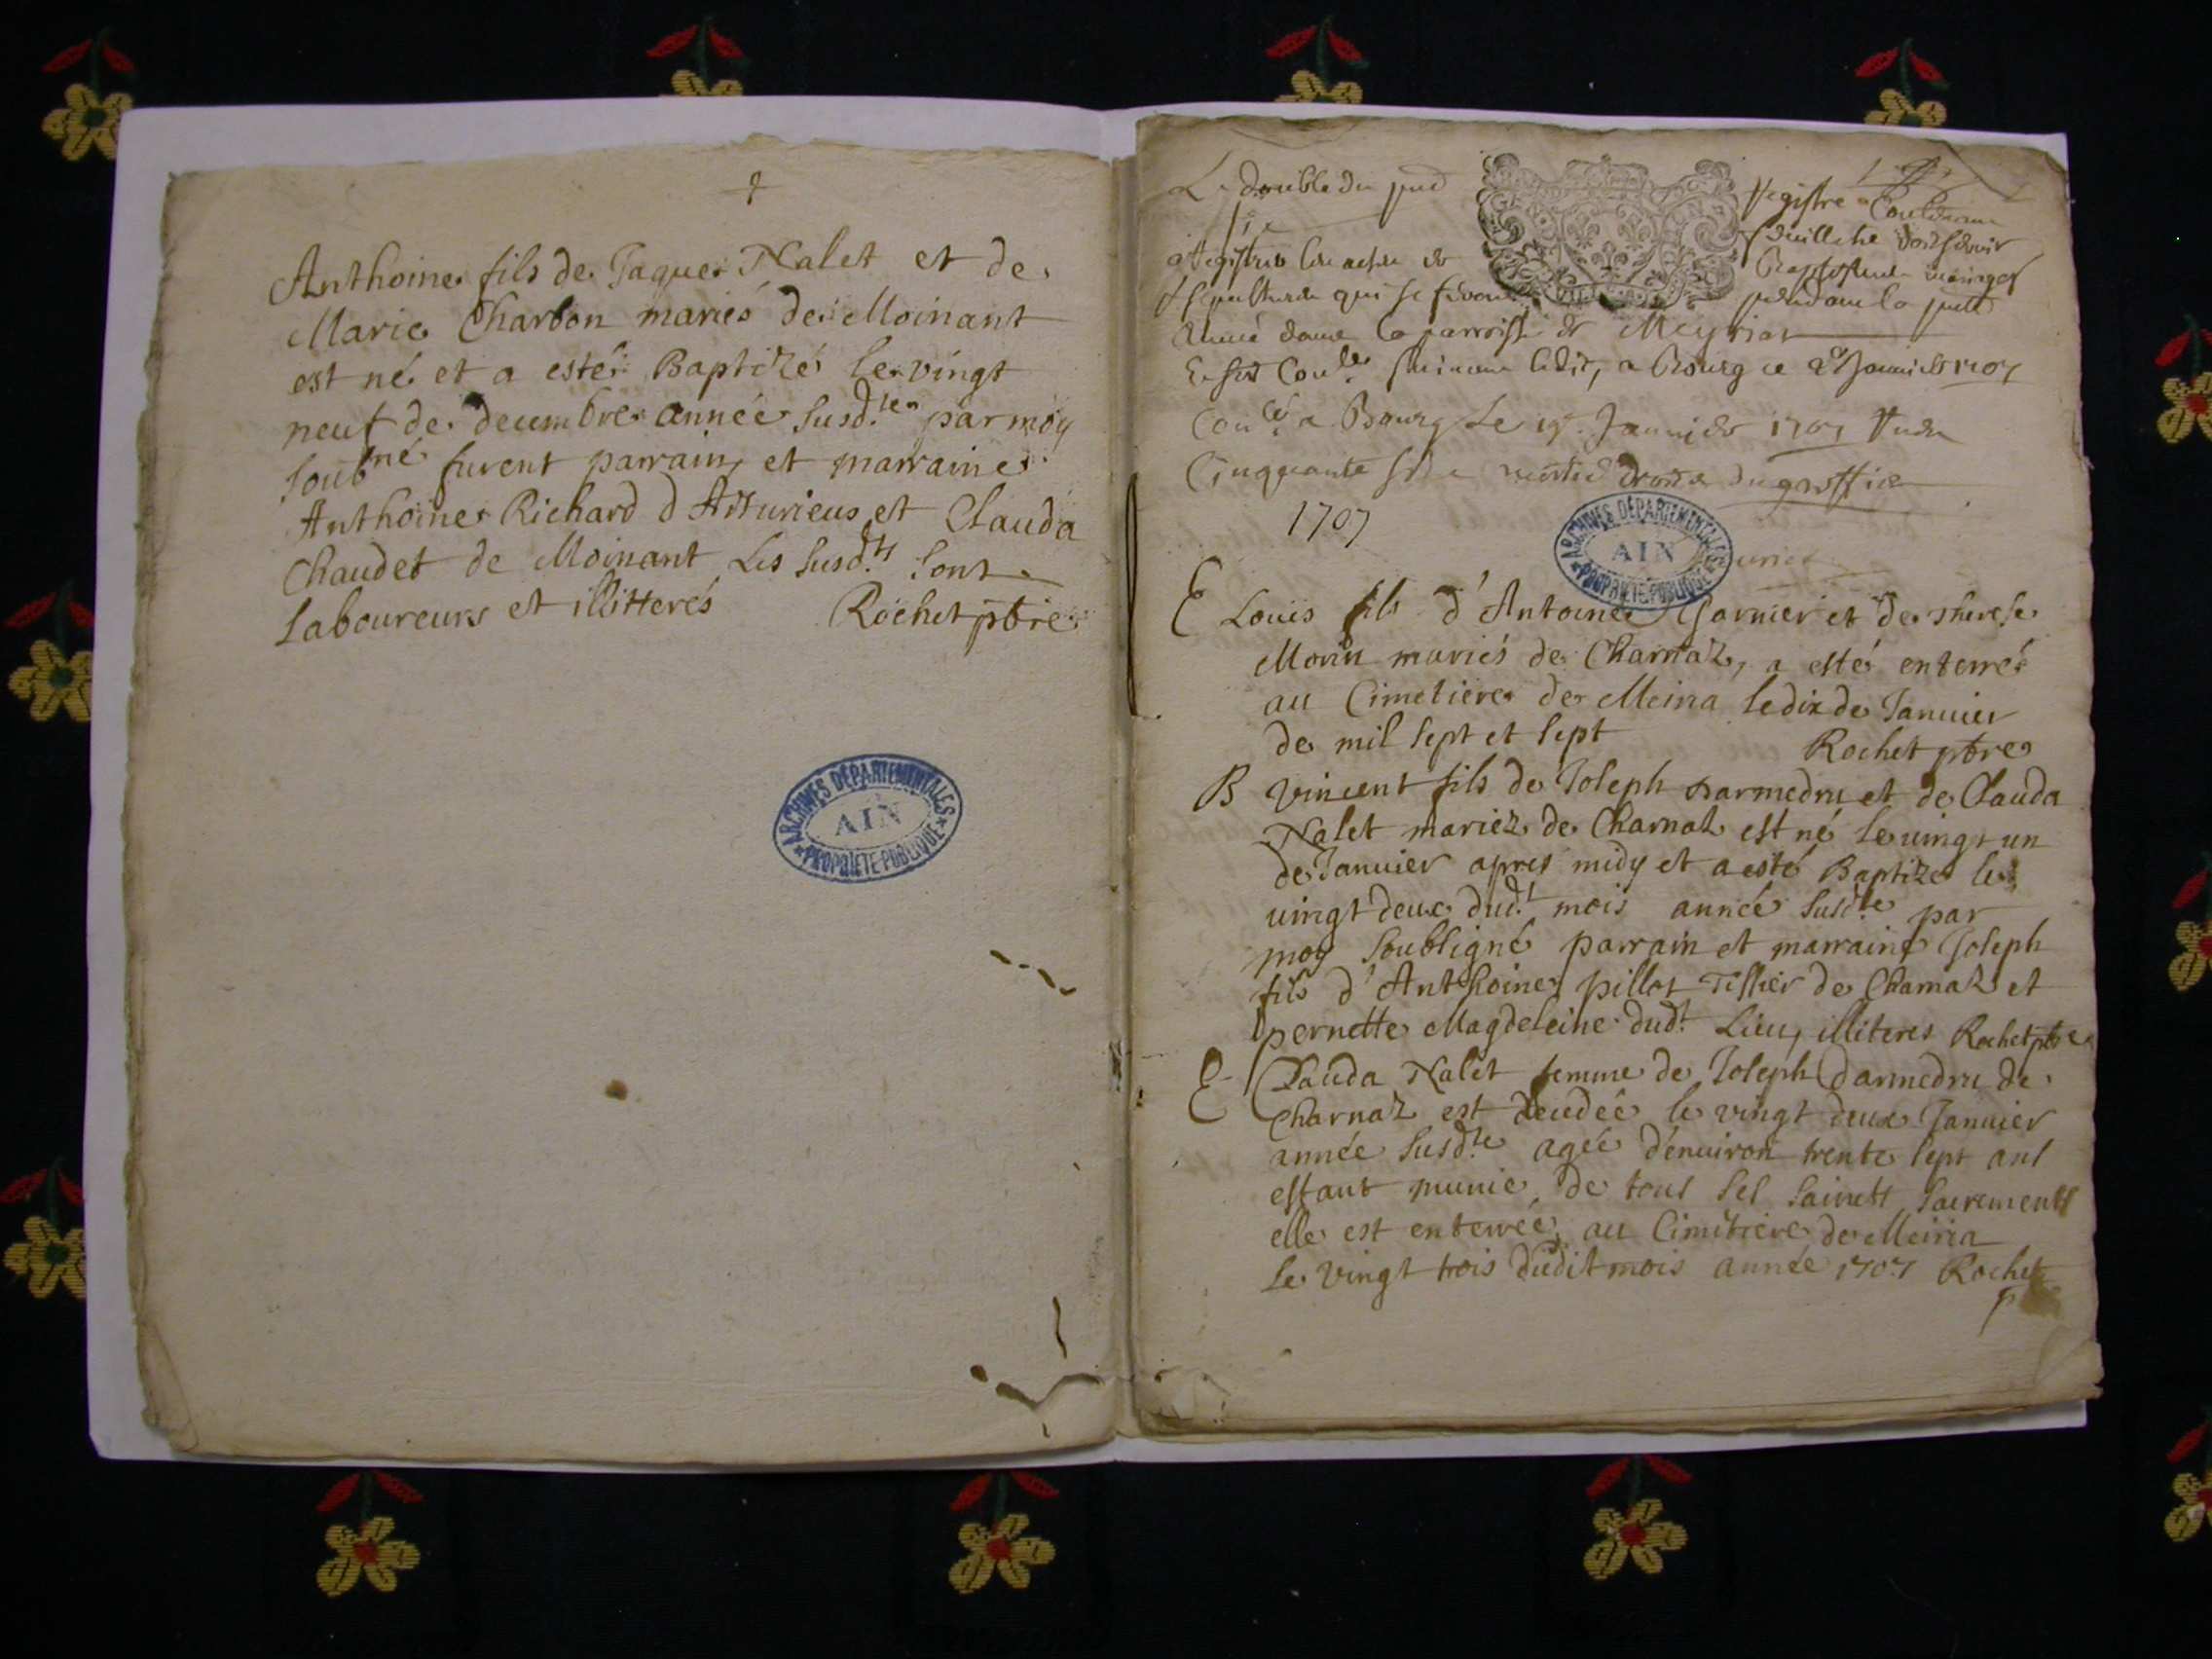 Anthoine fils de Jaques Nalet et de
Marie Charbon mariés de Moinant
est né et a esté Baptizé le vingt
neuf de decembre année susd.te par moy
soub.né furent parrain, et marraine
Anthoine Richard d'Arturieus et Clauda
Chaudet de Moinant Les susd.ts sont
laboureurs et illitterés Rochet pbre
ARCHIVES DEPARTEMENTALES
AIN
PROPRIETE PUBLIQUE
Le double du Registre Con
feuillets
Registrer les actes de Baptesmes mariages
Sepulture qui se feront pendant la
Année dans la parroisse de Meyriat
a Bourg ce Janvier 1707
a Bourg Le 19e Janvier 1707
Cinquante
1707
ARCHIVES DEPARTEMENTALES
AIN
PROPRIETE PUBLIQUE
E Louis fils d'Antoine Garnier et de Therese
Morin mariés de Charnaz, a esté enterré
au Cimetiere de Meiria le dix de Janvier
de mil sept et sept Rochet pbre
B Vincent fils de Joseph Darmedru et de Clauda
Nalet mariez de Charnaz est né le vingt un
de Janvier apres midy et a esté Baptizé le
vingt deux dud.t mois année susd.te par
moy soubsigné parrain et marraine Joseph
fils d'Anthoine pillot Tissier de Charnaz et
pernette Magdeleine dud.t Lieu, illiteres Rochet pbre
E Clauda Nalet femme de Joseph Darmedru de
Charnaz est decedée le vingt deux Janvier
année susd.te agée d'environ trente sept ans
estant munie de tous ses saincts sacrements
elle est enterrée au Cimetiere de Meiria
le vingt trois dudit mois année 1707 Rochet